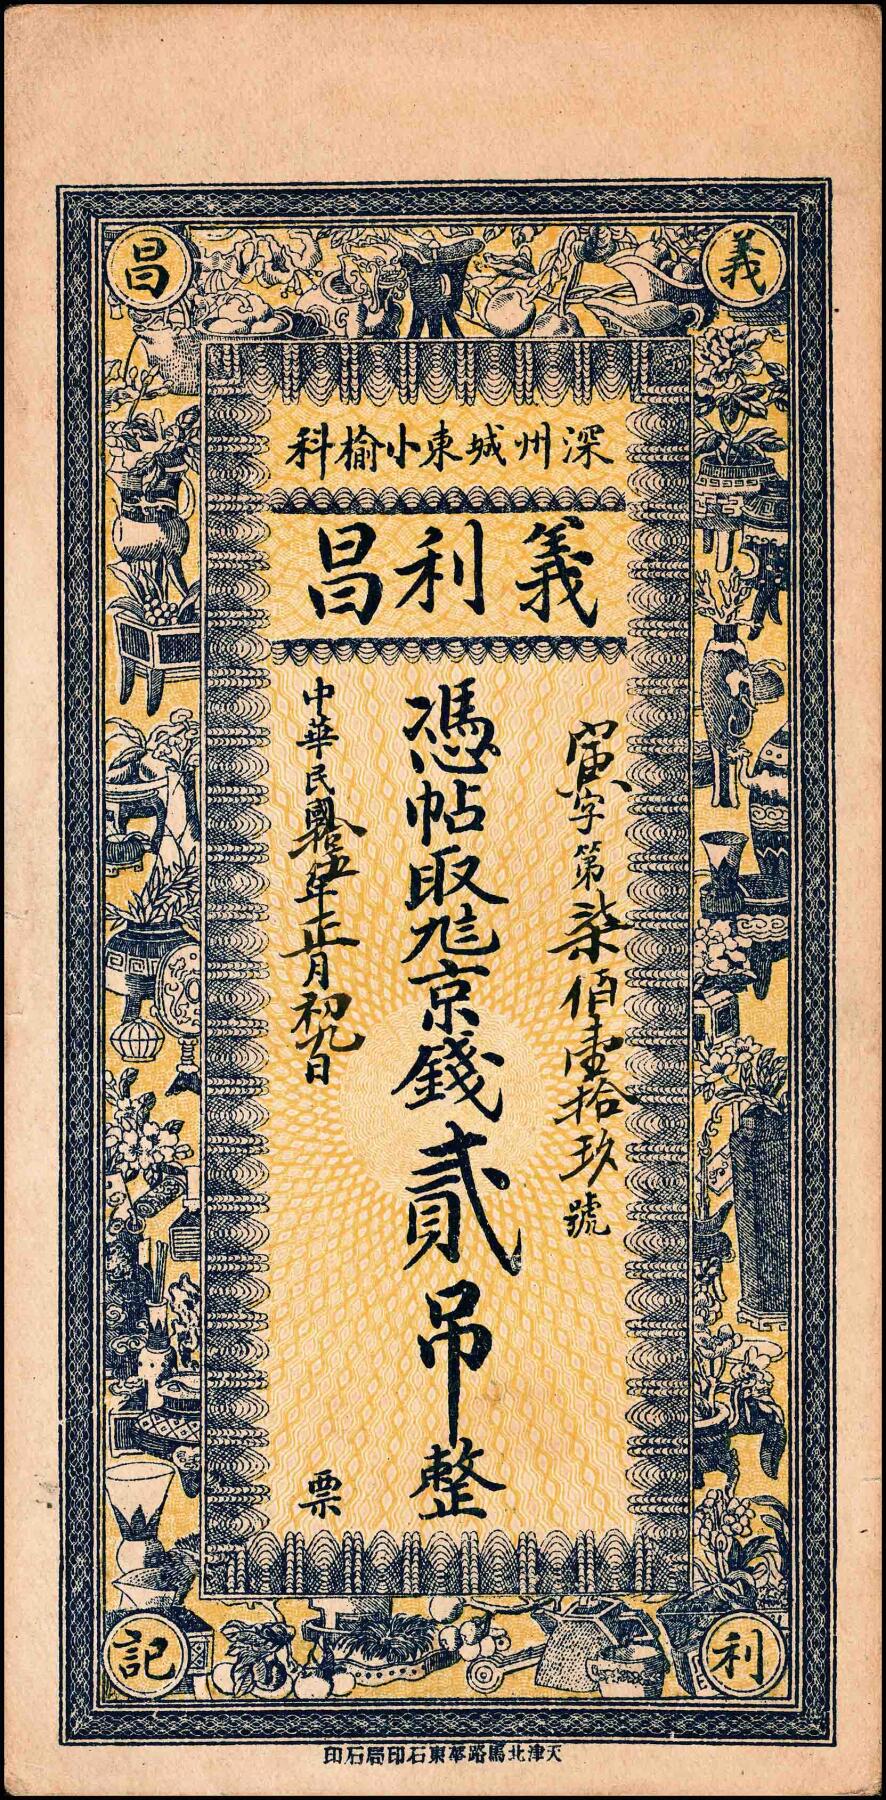 義
利
昌
記
深州城東小榆科
義利昌
寅字第柒佰壹拾玖號
憑帖取京錢貳吊整
中華民國拾伍年正月初九日
票
天津北馬路華東石印局石印